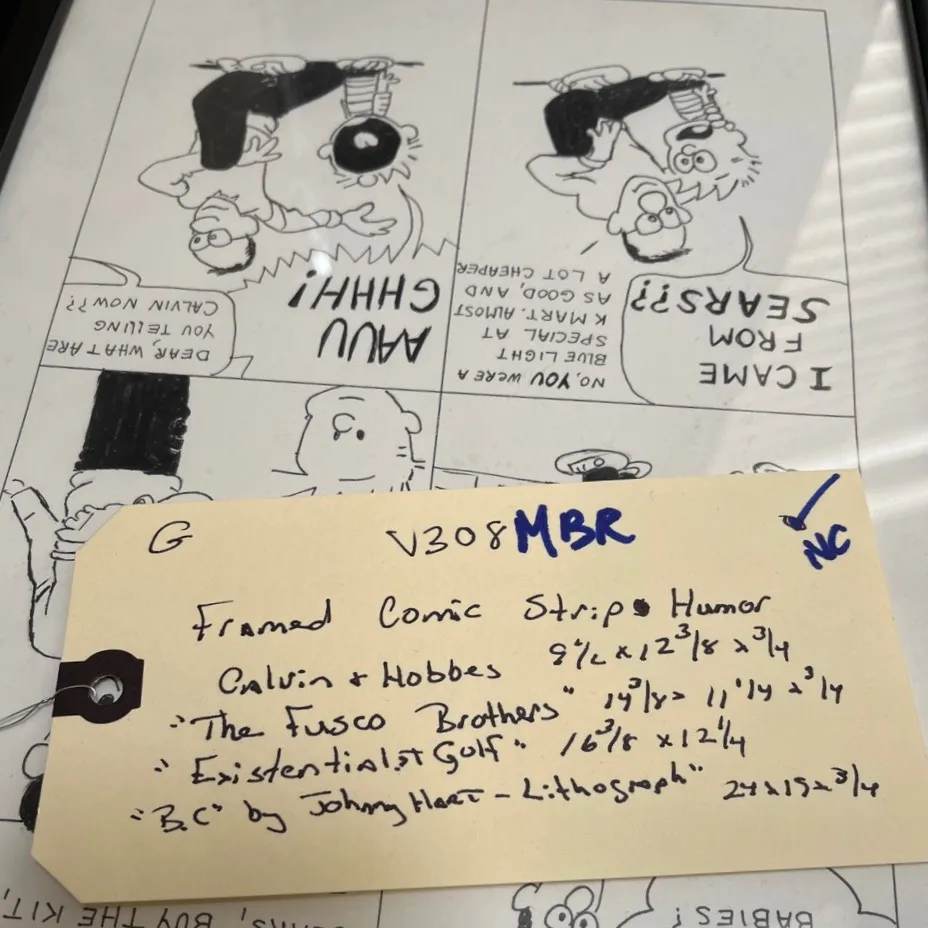 I CAME
FROM
SEARS??
NO, YOU WERE A
BLUE LIGHT
SPECIAL AT
K MART. ALMOST
AS GOOD, AND
A LOT CHEAPER
AAUU
GHHH!
DEAR, WHAT ARE
YOU TELLING
CALVIN NOW??
G V308 MBR NC
Framed Comic Strips Humor
Calvin + Hobbes 9 1/2 x 12 3/8 x 3/4
"The Fusco Brothers" 14 3/8 x 11 1/4 x 3/4
"Existentialist Golf" 16 3/8 x 12 1/4
"B.C" by Johnny Hart - Lithograph" 24 x 19 x 3/4
BABIES!
BUY THE KIT,